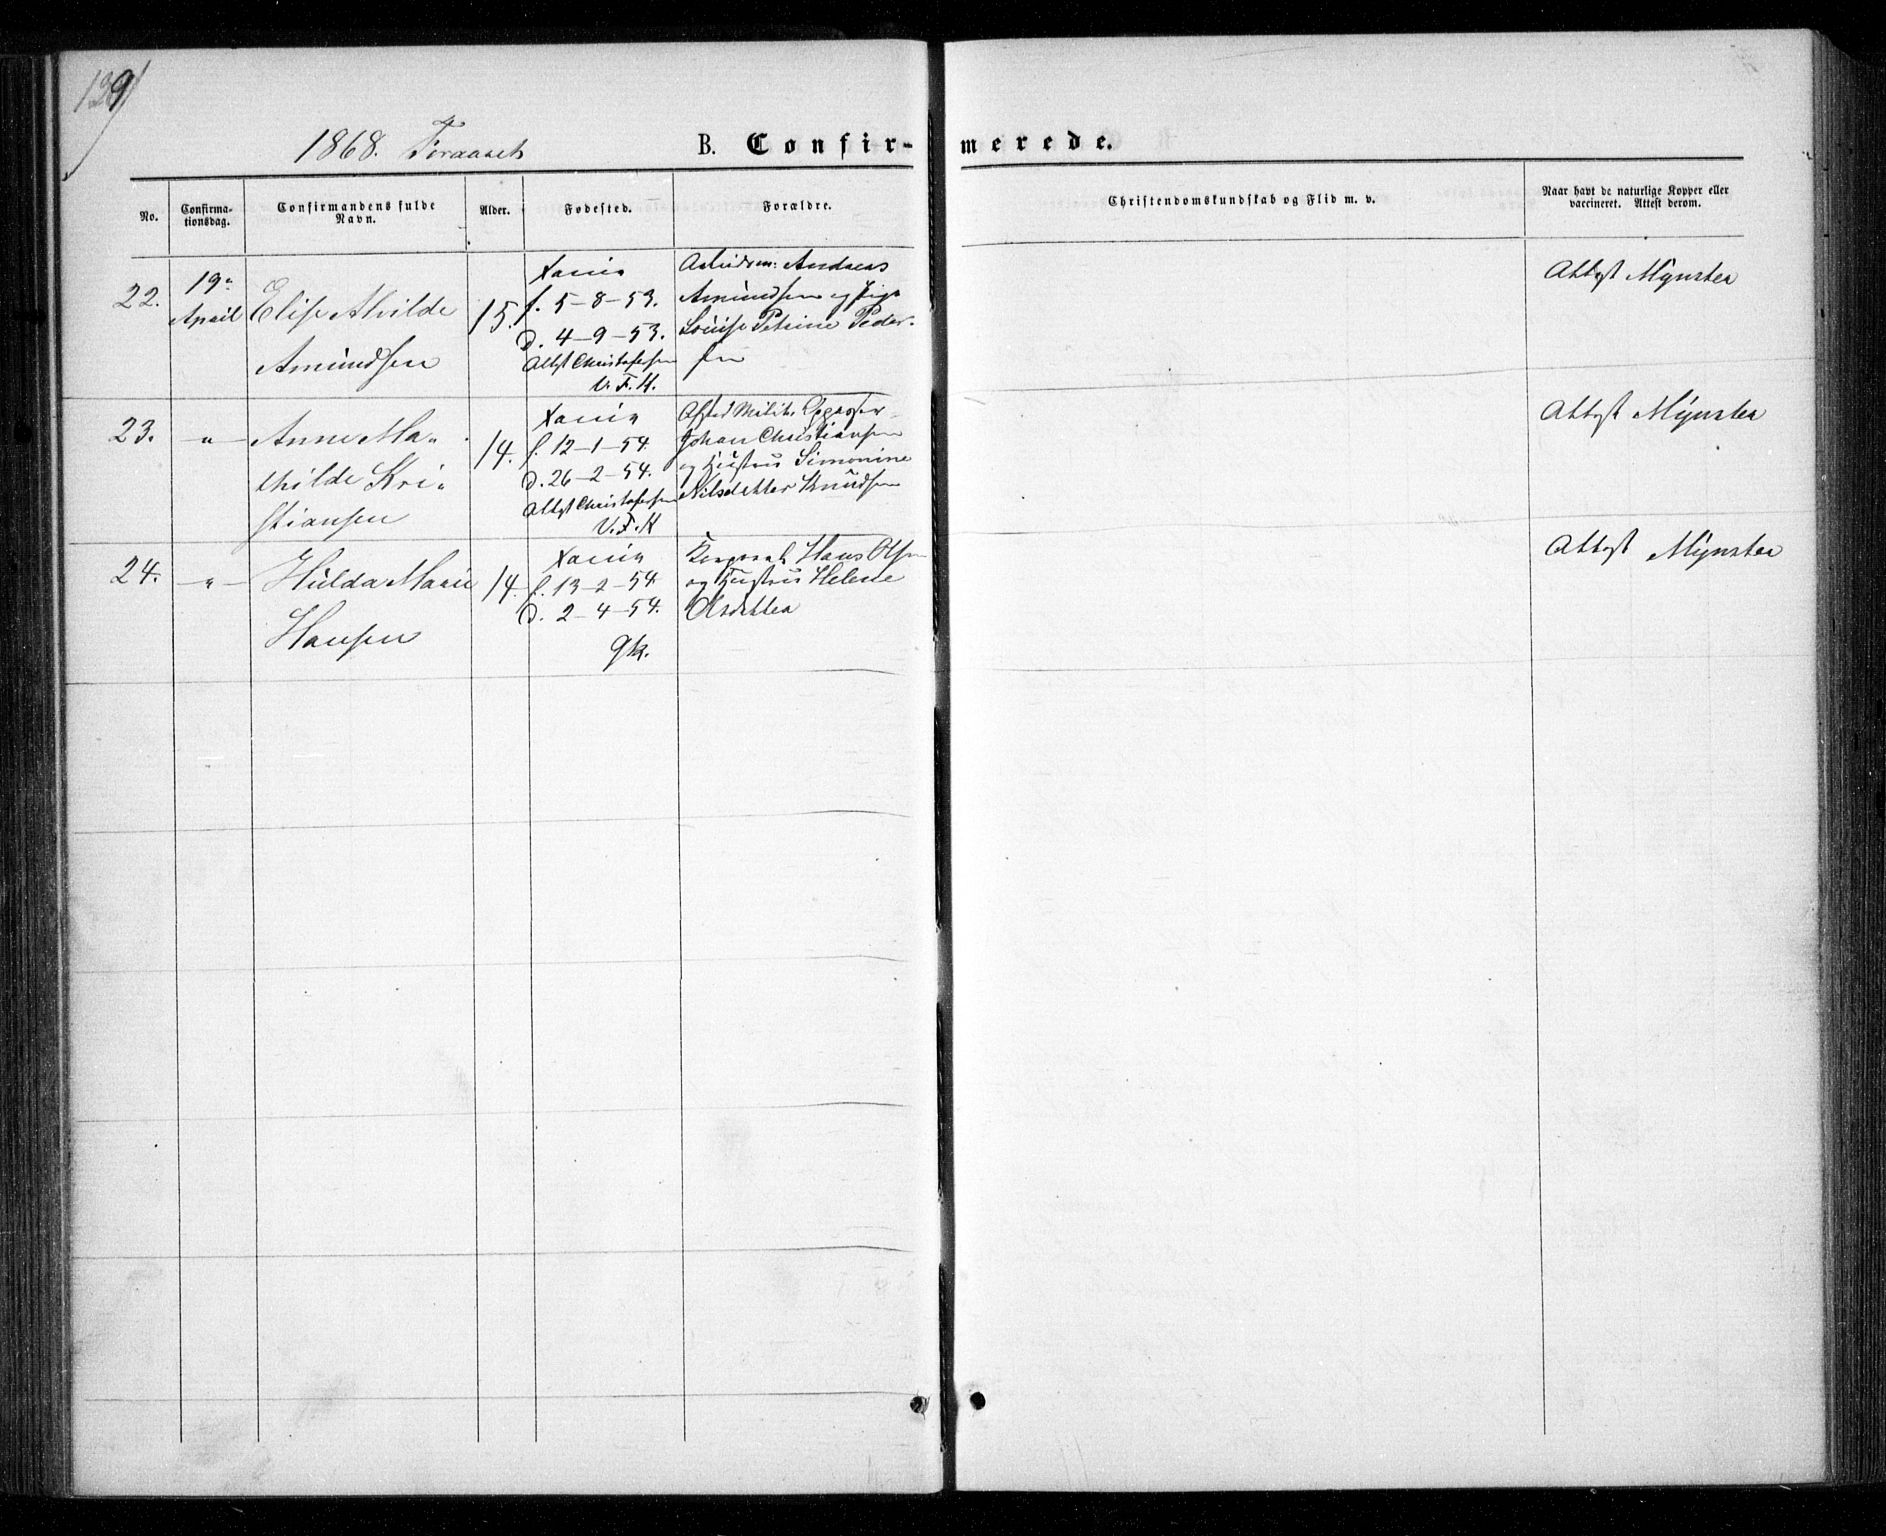 129
1868. Foraaret B. Confirmerede.
No. Confirmationsdag. Confirmandens fulde Navn. Alder. Fødested. Forældre. Christendomskundskab og Flid m. v. Naar havt de naturlige Kopper eller vaccineret. Attest derom.
22.
19de
April
Elise Alvilde
Amundsen
15.
Xania
f. 5-8-53.
D. 4-9-53.
Attest Christofersen
V. F. K.
Arbeidsm: Andreas
Amundsen og Pige
Louise Petrine Peder-
sen
Attest Mynster
23.
-"-
Anne Ma-
thilde Kri-
stiansen
14.
Xania
f. 12-1-54
D. 26-2-54.
Attest Christofersen
V. F. K
Johan Christiansen
og Hustru Simonine
Nilsdatter Knudsen
Attest Mynster
24.
-"-
Hulda Marie
Hansen
14.
Xania
f. 13-2-54
D. 2-4-54.
gk.
Hans Olsen
og Hustru Helene
Olsdatter
Attest Mynster